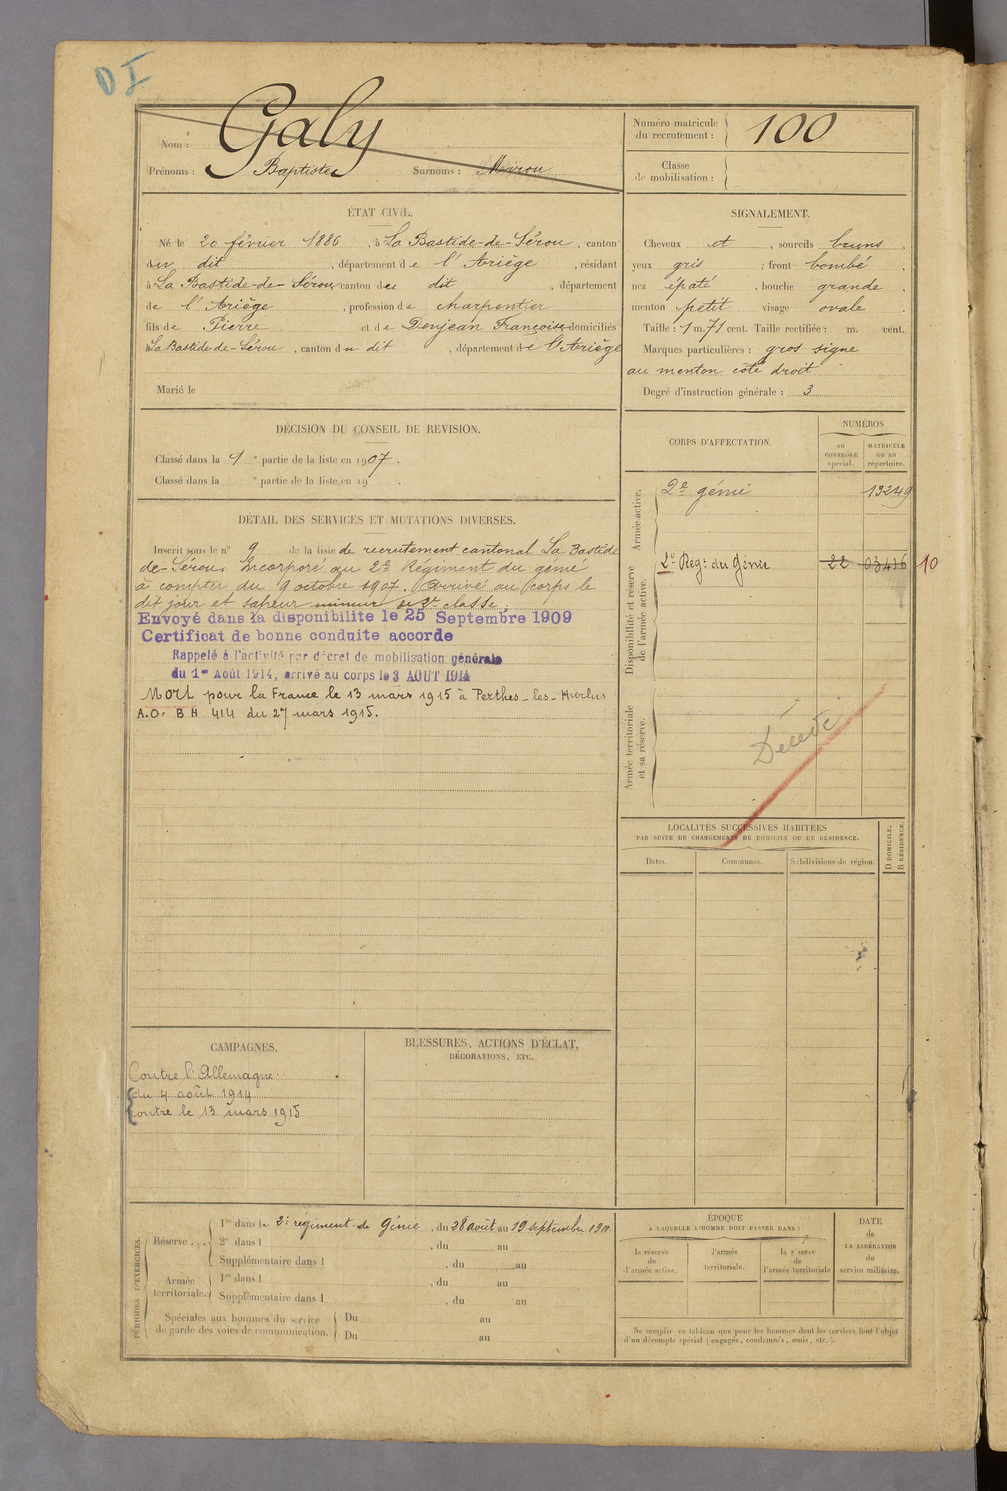 DI
Nom : Galy
Prénoms : Baptiste Surnoms : Mirou
Numéro matricule du recrutement : 100
Classe de mobilisation :
ÉTAT CIVIL.
Né le 20 février 1886, à La Bastide-de-Sérou, canton
du dit, département de l'Ariège, résidant
à La Bastide-de-Sérou canton du dit, département
de l'Ariège, profession de charpentier
fils de Pierre et de Donjean Françoise domiciliés
à La Bastide-de-Sérou, canton du dit, département de l'Ariège
Marié le
SIGNALEMENT.
Cheveux et, sourcils bruns
yeux gris ; front bombé
nez épaté, bouche grande
menton petit visage ovale
Taille : 1 m. 71 cent. Taille rectifiée : m. cent.
Marques particulières : gros signe
au menton côté droit
Degré d'instruction générale : 3
DÉCISION DU CONSEIL DE REVISION.
Classé dans la 1e partie de la liste en 1907.
Classé dans la e partie de la liste en 19
DÉTAIL DES SERVICES ET MUTATIONS DIVERSES.
Inscrit sous le n° 9 de la liste de recrutement cantonal La Bastide
de-Sérou. Incorporé au 2e Régiment du génie
à compter du 9 octobre 1907. Arrivé au corps le
dit jour et sapeur mineur de 2e classe.
Envoyé dans la disponibilite le 25 Septembre 1909
Certificat de bonne conduite accorde
Rappelé à l'activité par décret de mobilisation générale
du 1er Août 1914, arrivé au corps le 3 AOUT 1914
Mort pour la France le 13 mars 1915 à Perthes-les-Hurlus
A.O. B H 414 du 27 mars 1915.
CORPS D'AFFECTATION.
NUMÉROS
au CONTRÔLE spécial.
MATRICULE ou au répertoire.
Armée active.
2e génie 13249
Disponibilité et réserve de l'armée active.
2e Régt du Génie 22 03416 10
Armée territoriale et sa réserve.
Décédé
LOCALITÉS SUCCESSIVES HABITÉES
PAR SUITE DE CHANGEMENTS DE DOMICILE OU DE RÉSIDENCE.
Dates. Communes. Subdivisions de région. D DOMICILE. R RÉSIDENCE.
CAMPAGNES.
Contre l'Allemagne
du 4 août 1914
contre le 13 mars 1915
BLESSURES, ACTIONS D'ÉCLAT,
DÉCORATIONS, ETC.
PÉRIODES D'EXERCICES.
Réserve... 1re dans le 2e régiment de Génie, du 28 août au 19 septembre
2e dans l , du au
Supplémentaire dans l , du au
Armée territoriale. 1re dans l , du au
Supplémentaire dans l , du au
Spéciales aux hommes du service de garde des voies de communication. Du au
Du au
ÉPOQUE
A LAQUELLE L'HOMME DOIT PASSER DANS :
la réserve de l'armée active.
l'armée territoriale.
la réserve de l'armée territoriale
DATE de LA LIBÉRATION du service militaire.
Ne remplir ce tableau que pour les hommes dont les services font l'objet
d'un décompte spécial (engagés, condamnés, omis, etc.).